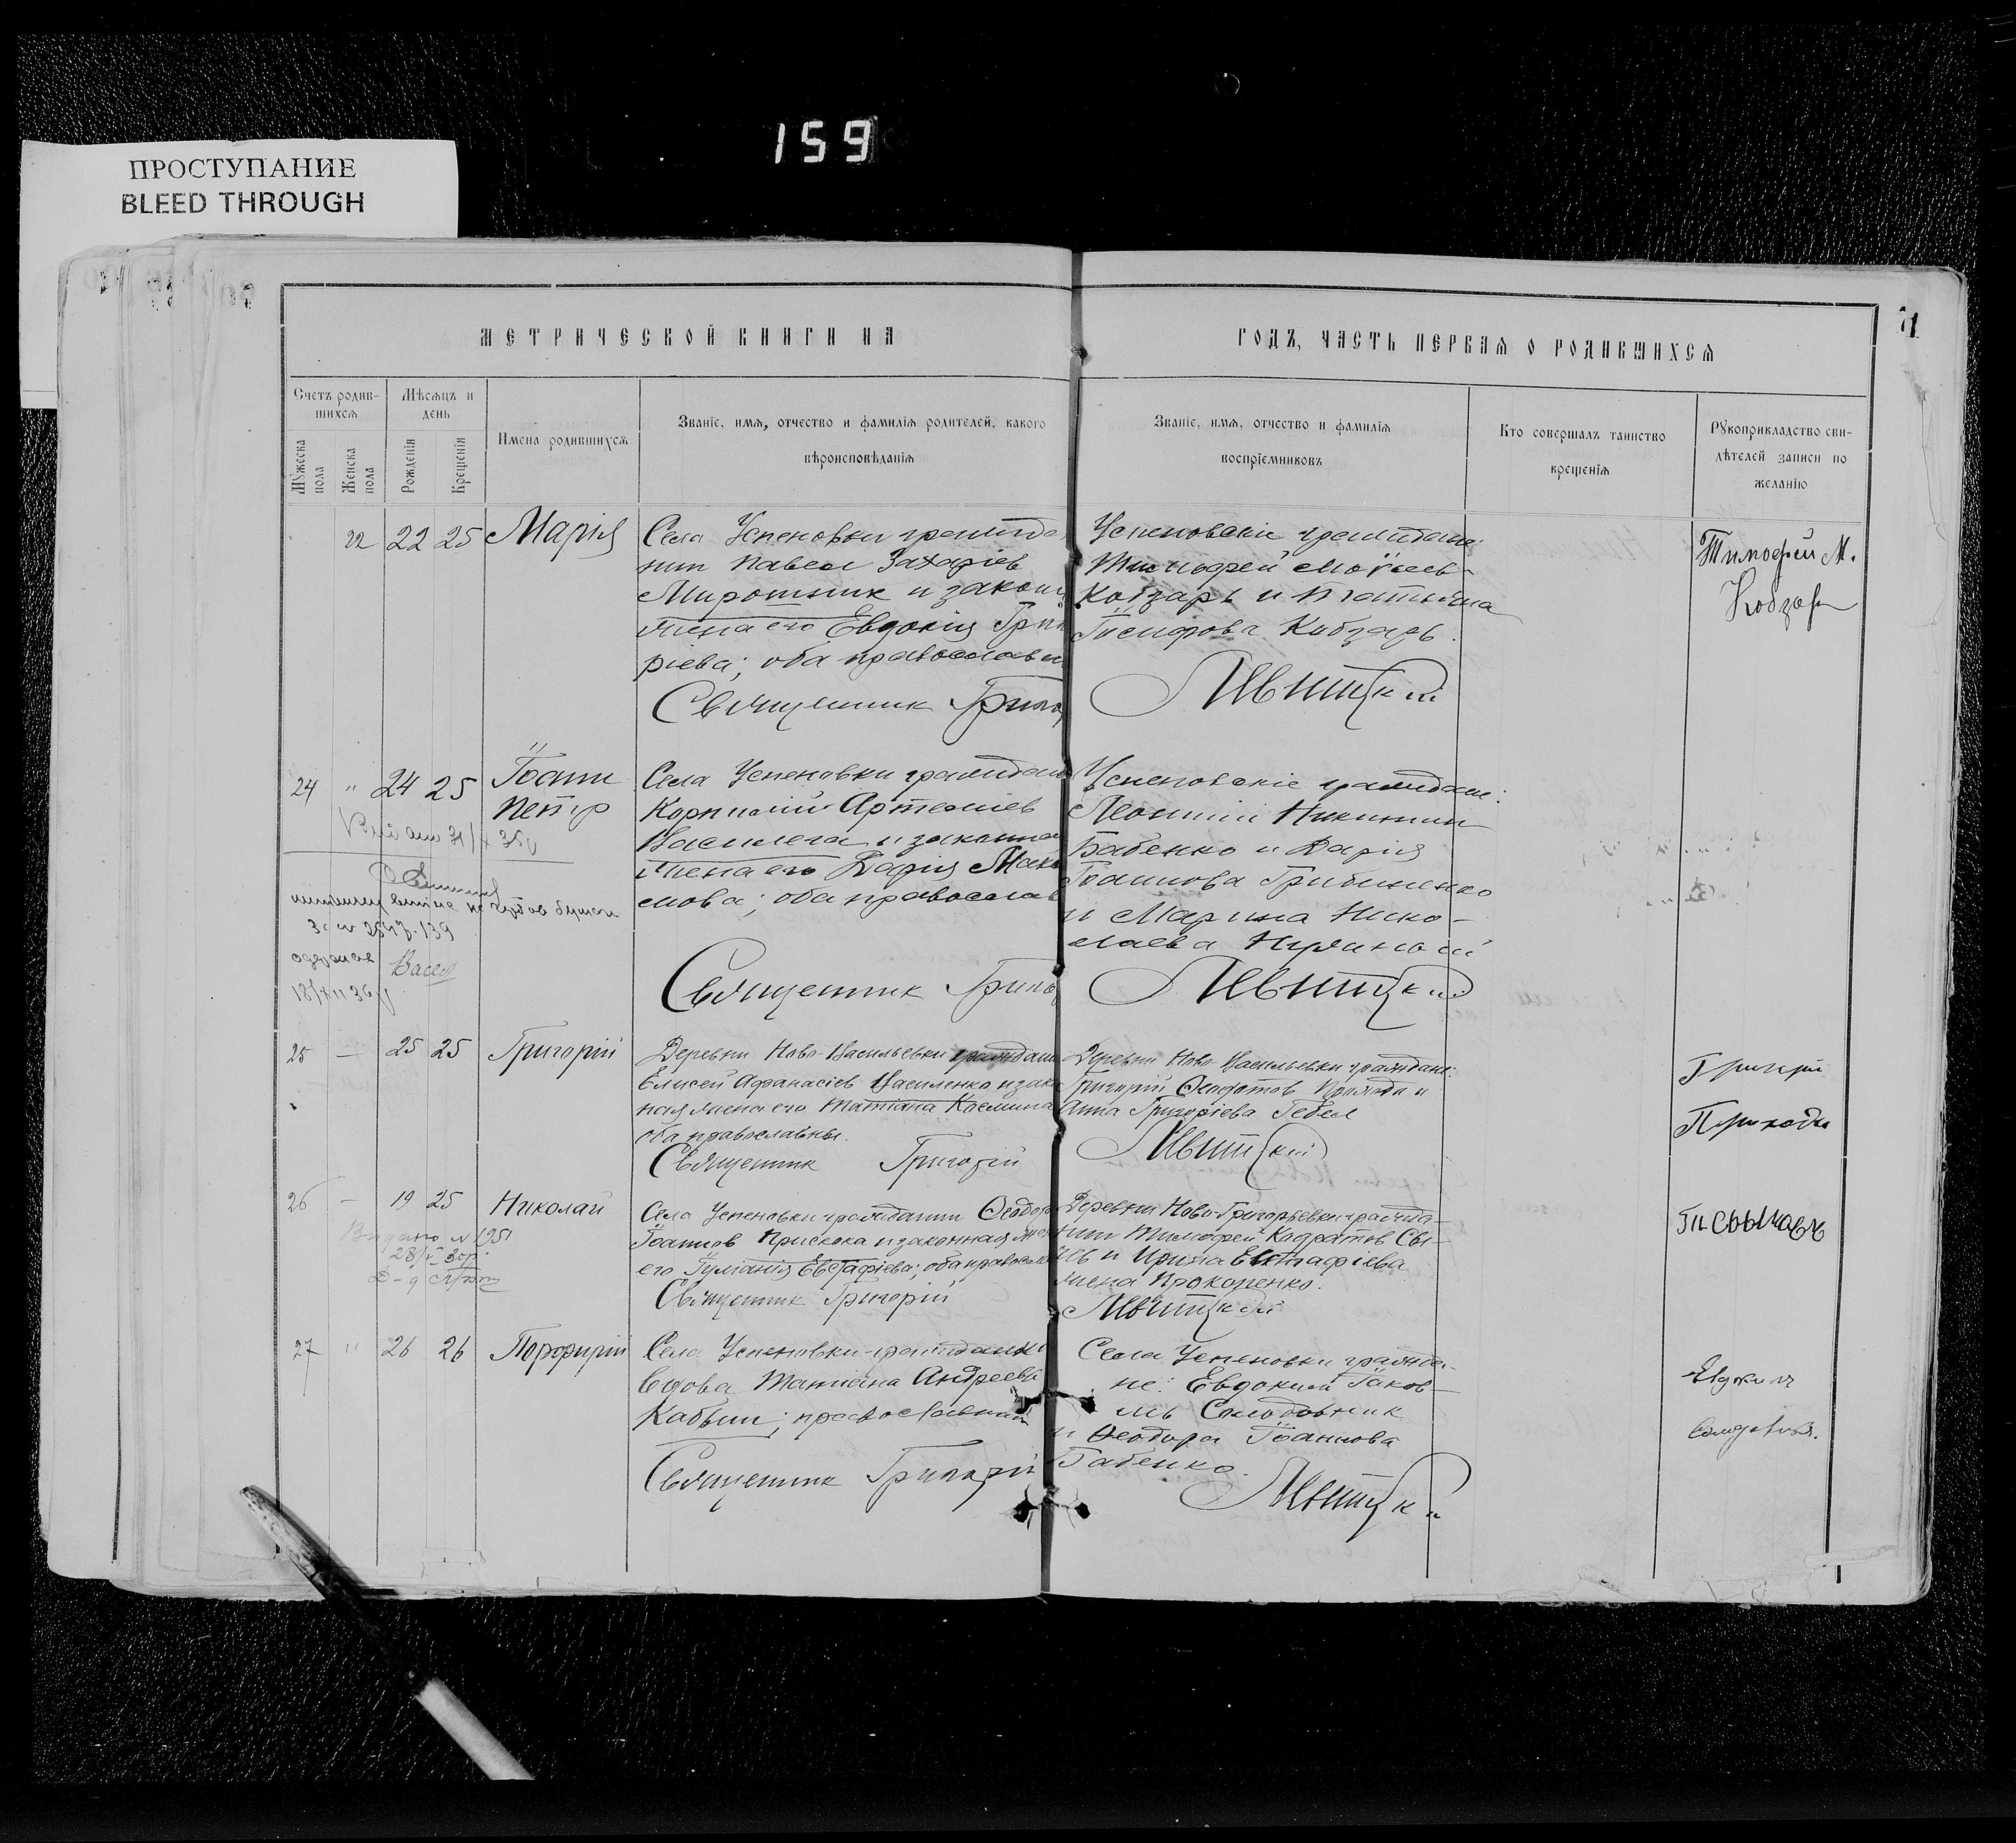 159
ПРОСТУПАНИЕ
BLEED THROUGH
71
МЕТРИЧЕСКОЙ КНИГИ НА
ГОДЪ, ЧАСТЬ ПЕРВАЯ О РОДИВШИХСЯ
Счетъ родив-
шихся
Мѣсяцъ и
день
Мужеска
пола
Женска
пола
Рожденія
Крещенія
Имена родившихся
Званіе, имя, отчество и фамилія родителей, какого
вѣроисповѣданія
Званіе, имя, отчество и фамилія
воспріемниковъ
Кто совершалъ таинство
крещенія
Рукоприкладство сви-
дѣтелей записи по
желанію
22 22 25 Марія
Села Успеновки граждан
нин Павел Захаріев
Мирошник и закон
жена его Евдокія Григо
ріева; оба православн
Священник Григор
Успеновскіе граждане:
Тимофей Моѵсеев
Кобзарь и Татьяна
Іосифова Кобзарь.
Левитскій
Тимофей М.
Кобзар
24 " 24 25 Іоанн
Петр
Села Успеновки гражданин
Корнилій Артеміев
Василега и законна
жена его Дарія Макси
мова; оба православ
Священник Григо
Успеновскіе граждане:
Леонтій Никитин
Бабенко и Дарія
Іоаннова Грибиненко
и Марина Нико-
лаева
Левитскій
25 — 25 25 Григорій
Деревни Ново-Васильевки граждан
Елисей Афанасіев Василенко и зако
ная жена его Татіана Косьмина
оба православны.
Священник Григорій
Деревни Ново-Васильевки граждане:
Григорій Ѳеодотов Приходa и
Анна Григоріева Гебел
Левитскій
Григорій
Приходa
26 — 19 25 Николай
Видано № 1951
Села Успеновки гражданин Ѳеодор
Іоаннов Прискока и законная жен
его Іуліанія Евстафіева; оба православ
Священник Григорій
Деревни Ново-Григорьевки гражда-
нин Тимофей Кодратов Сы-
и Ирина Евстафіева
жена Прокопенко.
Левитскій
27 " 26 26 Порфирій
Села Успеновки гражданки
вдова Татіана Андреева
Кабыш; православная
Священник Григорій
Села Успеновки гражда-
не: Евдоким Іаков-
лев Солодовник
и Ѳеодора Іоаннова
Бабенко.
Левитск
Евдоким